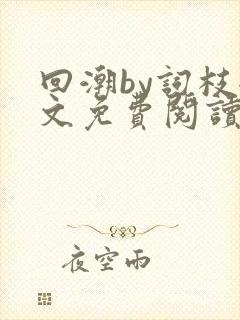 回潮by詞枝
文免費閱讀
夜空雨